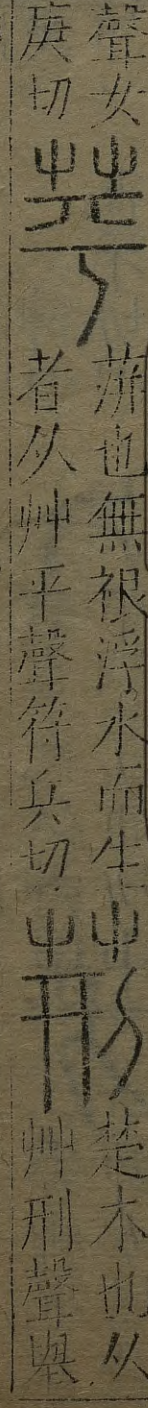 聲女
庚切
苹
蓱也無根浮水而生
者从艸平聲符兵切
荆
楚木也从
艸刑聲舉